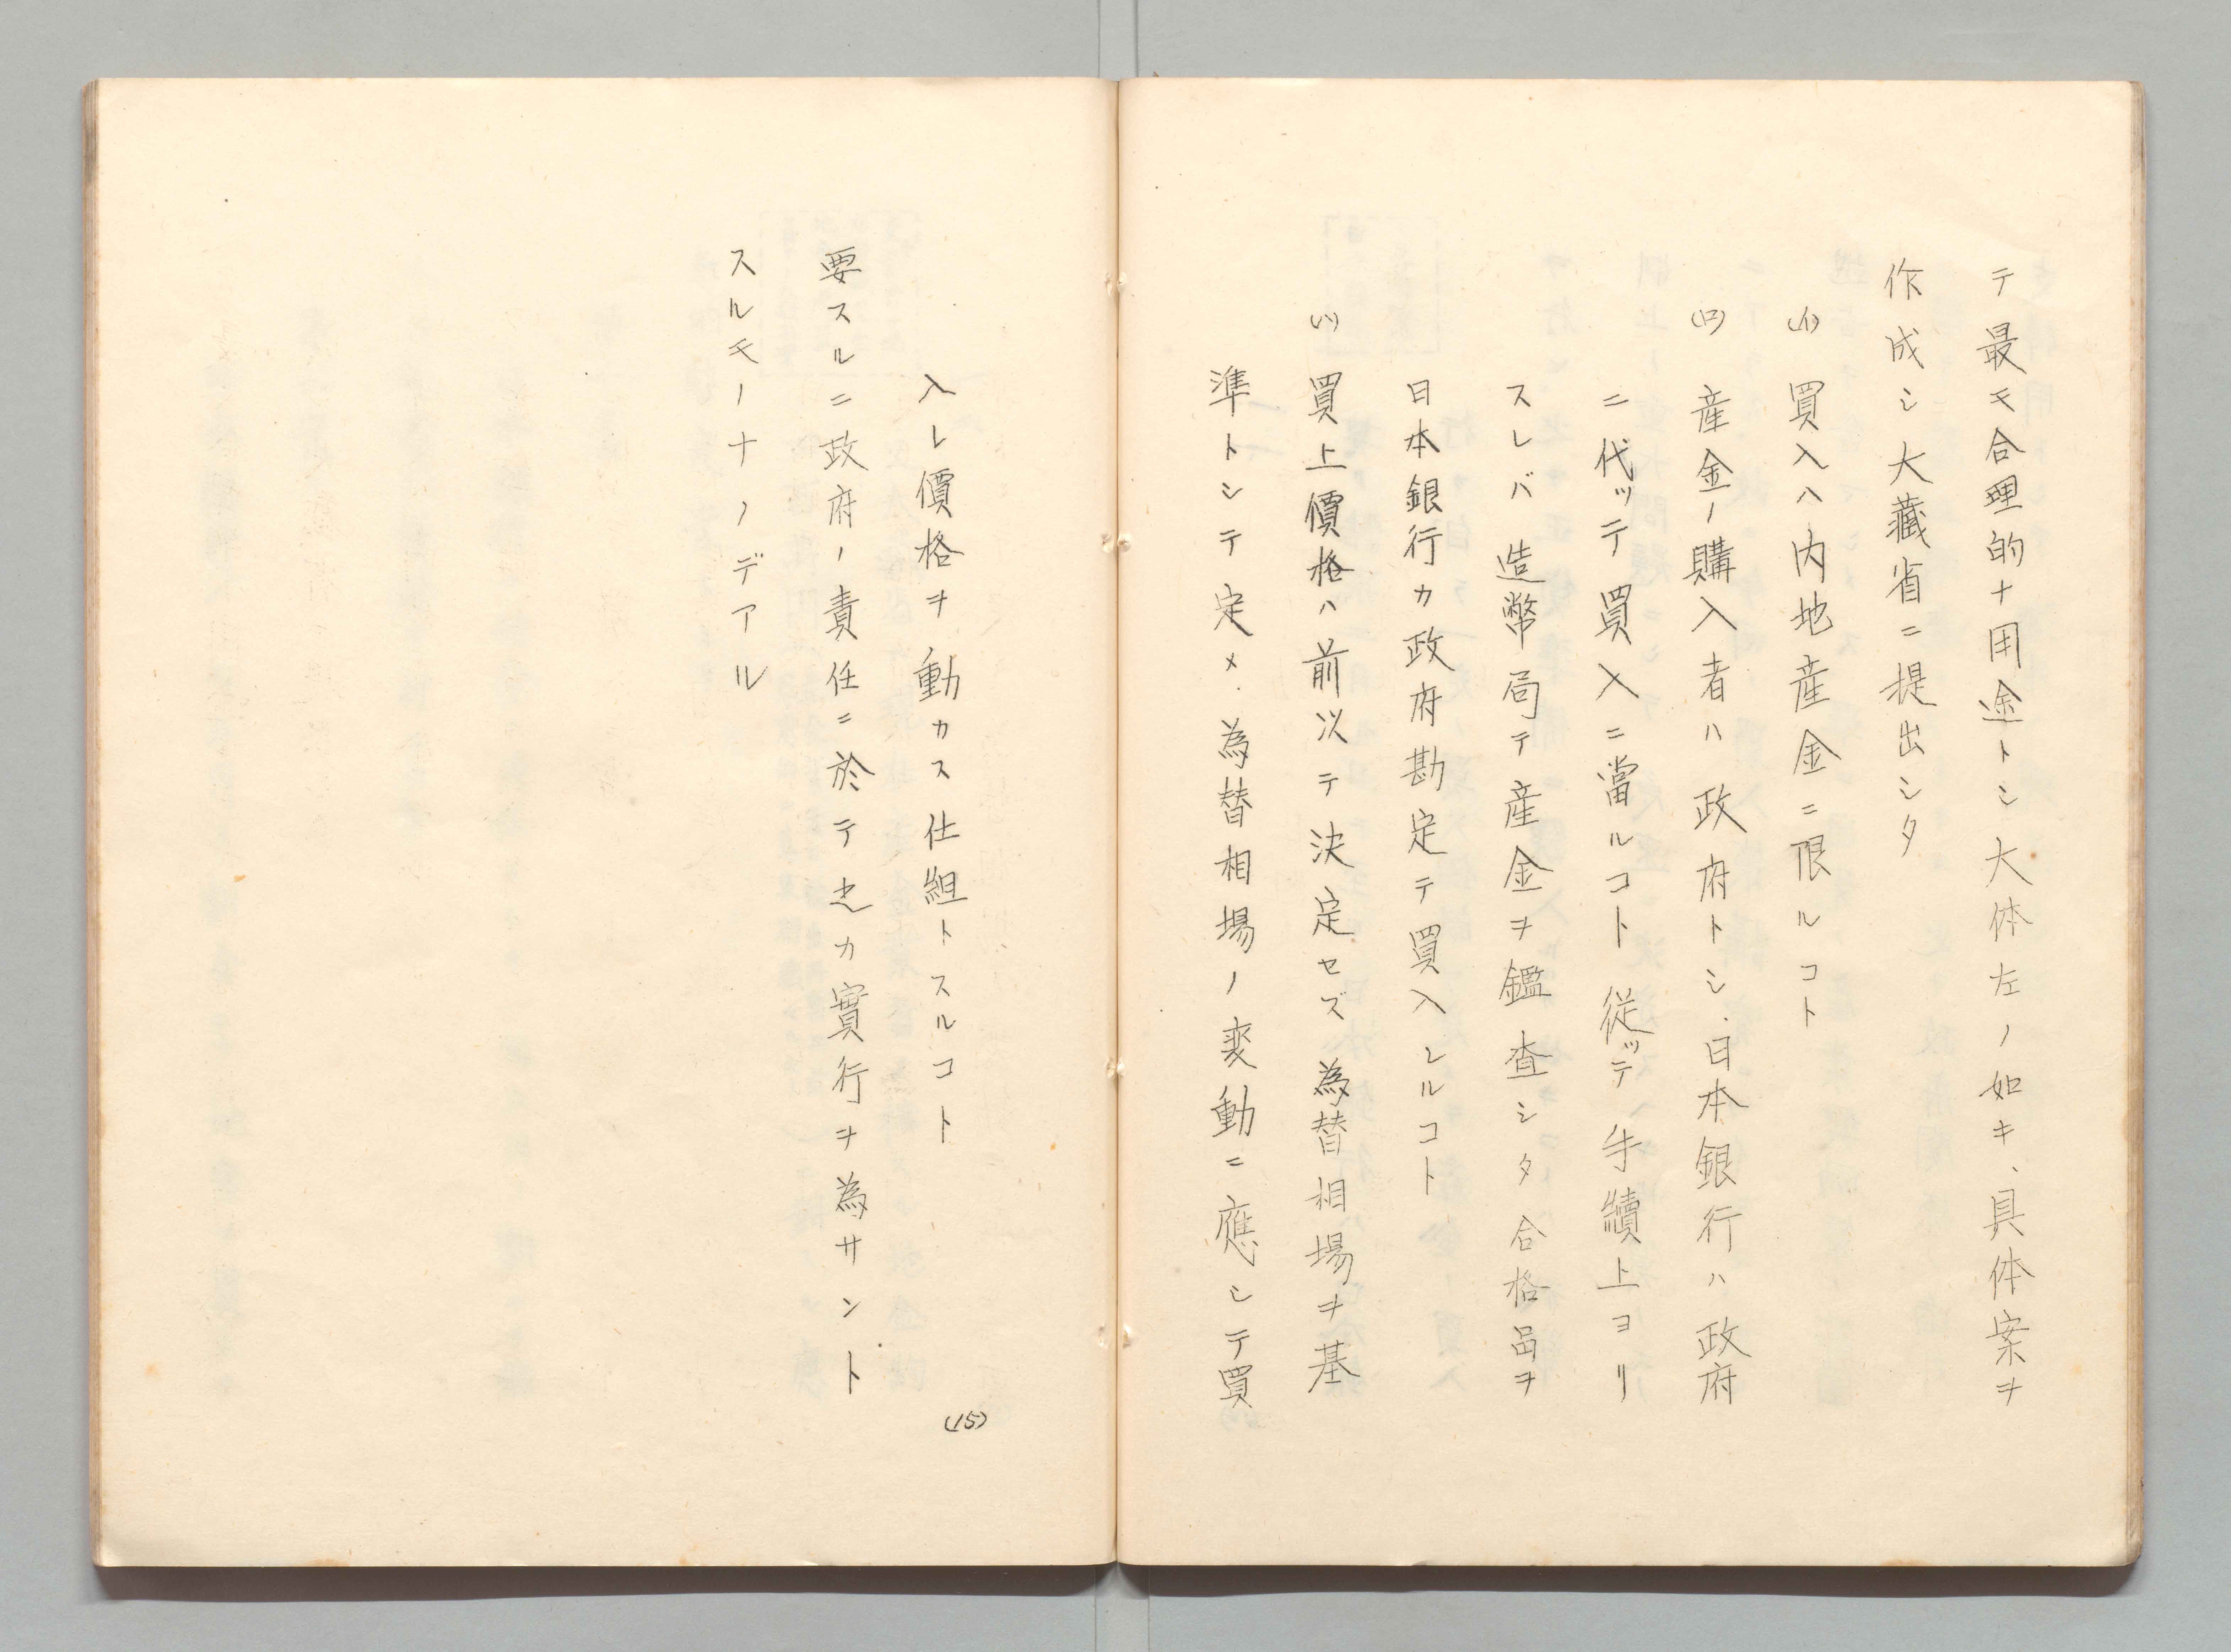 テ最モ合理的ナ用途トシ大体左ノ如キ、具体案ヲ
作成シ大藏省ニ提出シタ
(イ) 買入ハ内地産金ニ限ルコト
(ロ) 産金ノ購入者ハ政府トシ、日本銀行ハ政府
ニ代ッテ買入ニ當ルコト 従ッテ手續上ヨリ
スレバ造幣局テ産金ヲ鑑査シタ合格品ヲ
日本銀行カ政府勘定テ買入レルコト
(ハ) 買上價格ハ前以テ決定セズ 為替相場ヲ基
準トシテ定メ、為替相場ノ変動ニ應シテ買
入レ價格ヲ動カス仕組トスルコト
要スルニ政府ノ責任ニ於テ之カ實行ヲ為サント
スルモノナノデアル
(15)